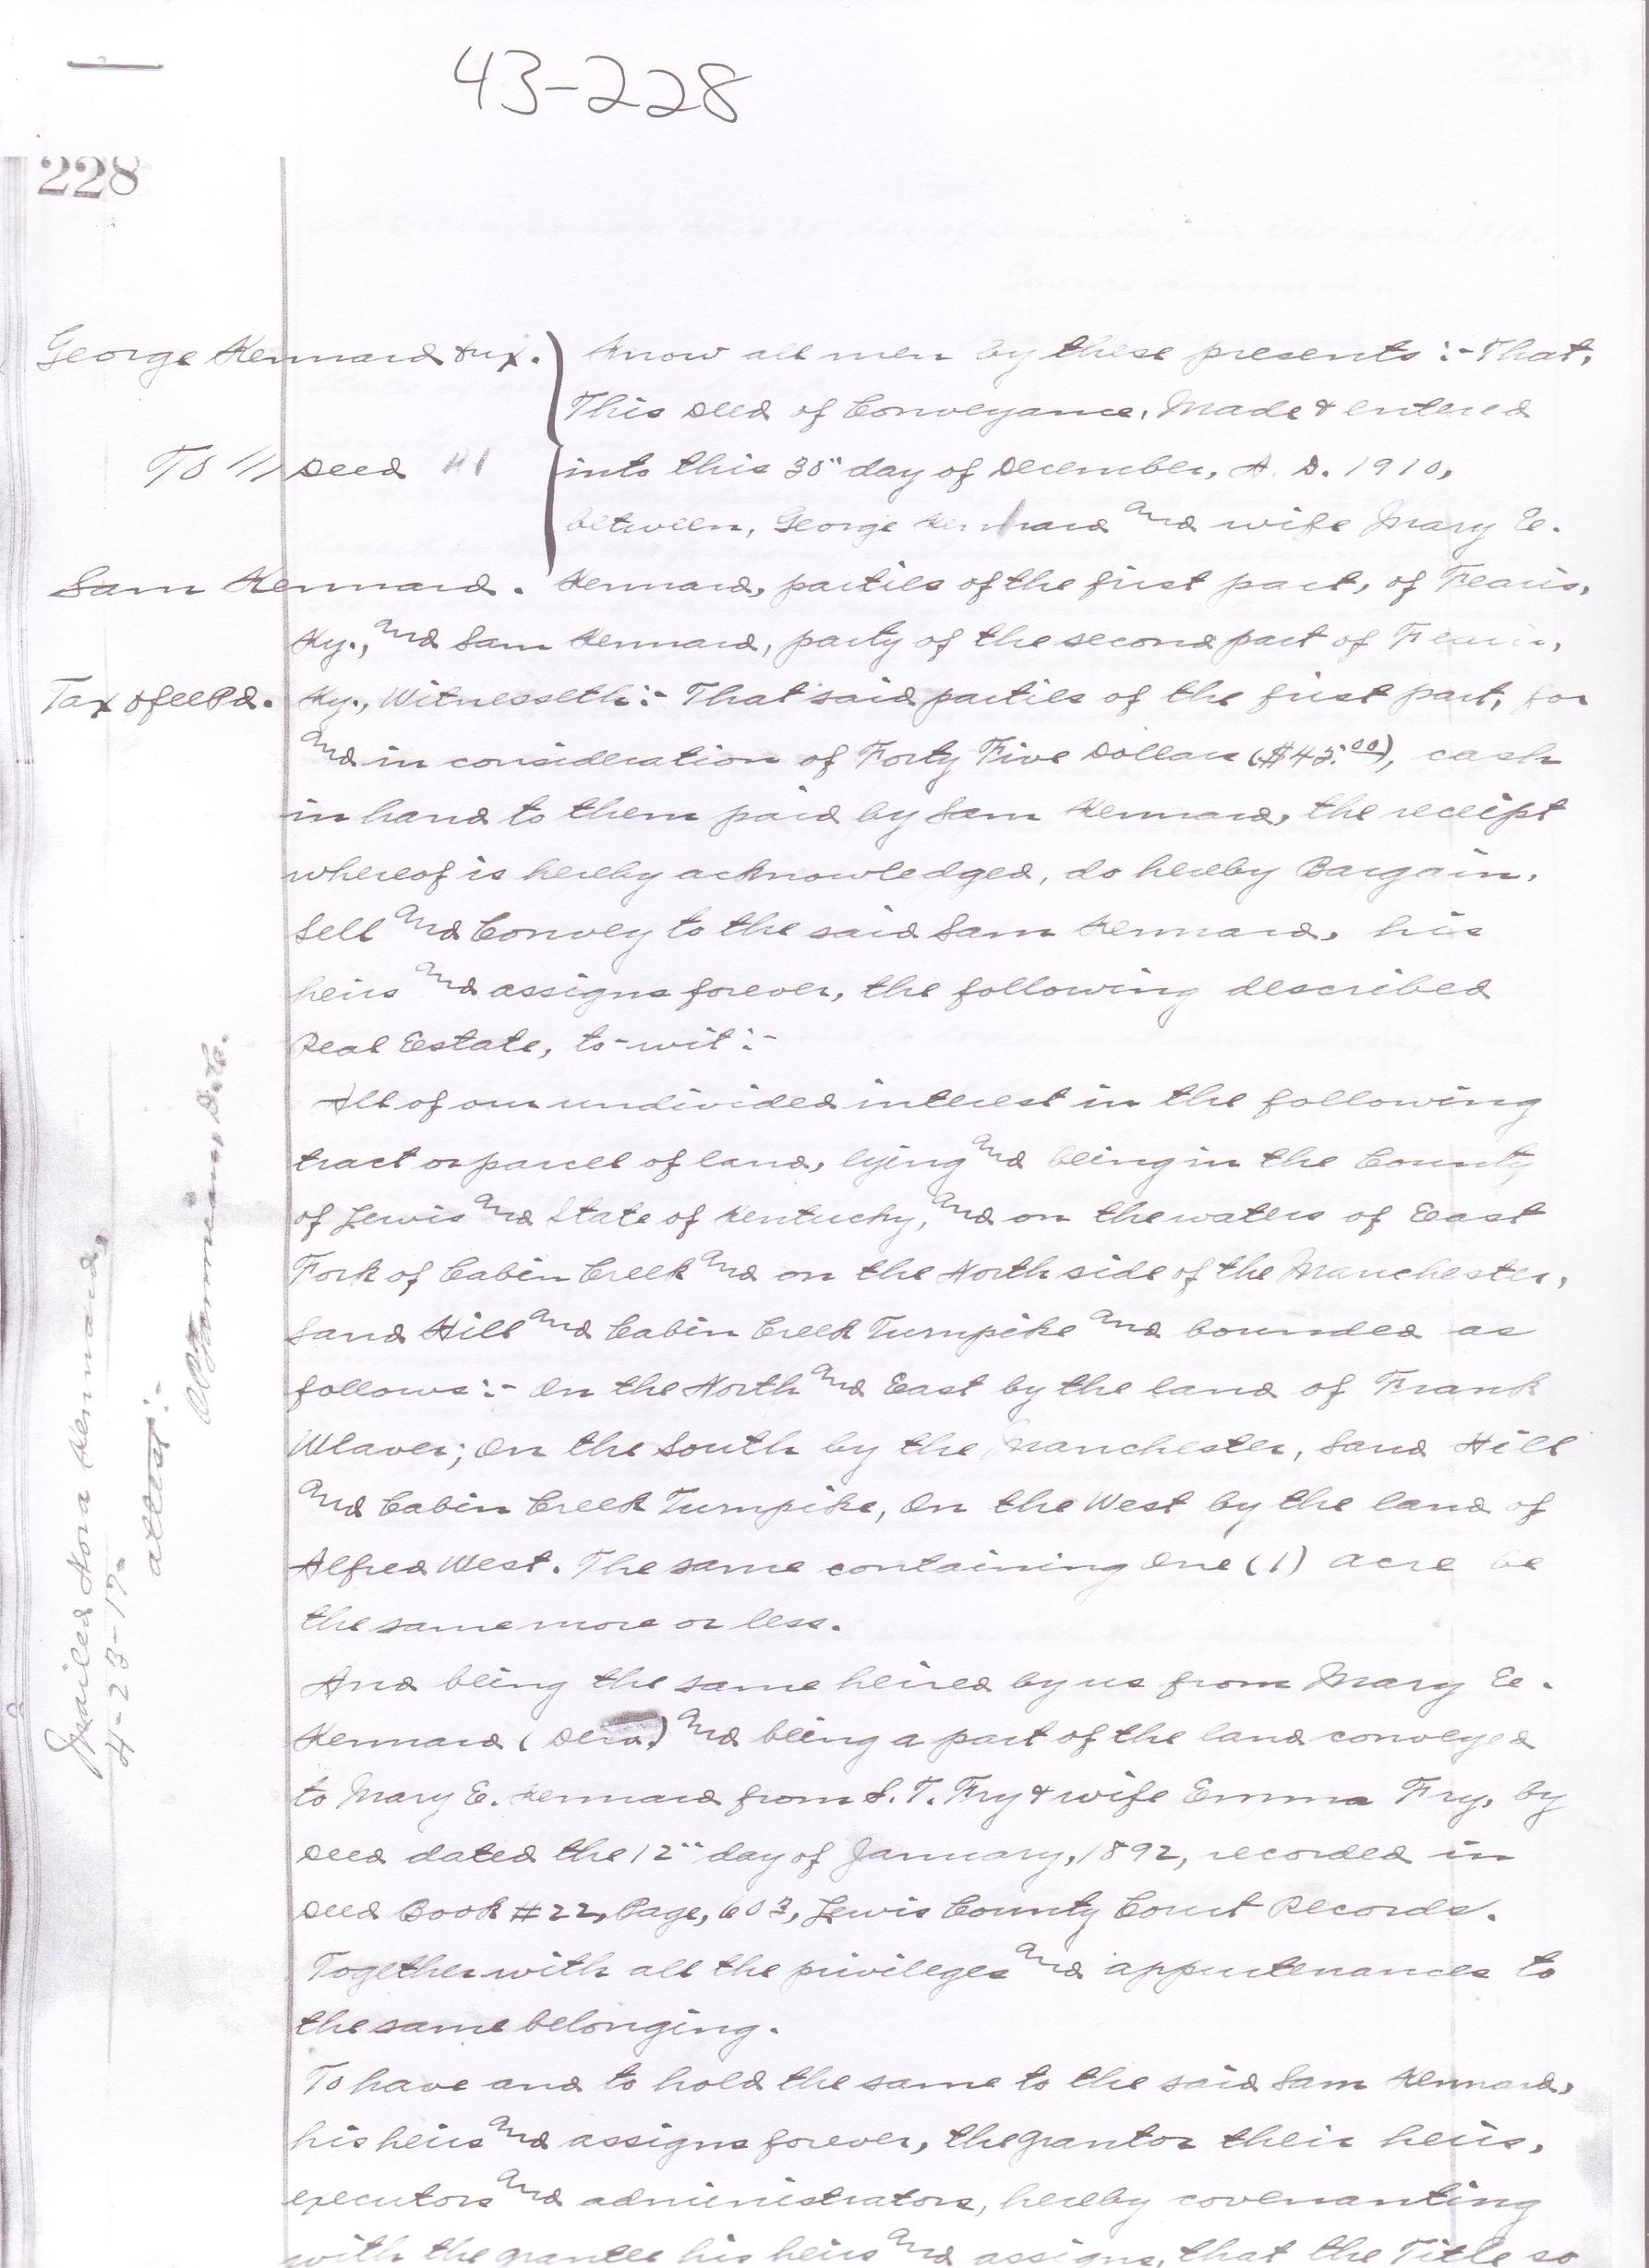 43-228
228
George Kennard & ux.
To // Deed
Sam Kennard.
Tax & fee Pd.
Know all men by these presents :- That,
This Deed of Conveyance, Made & entered
into this 30" day of December, A. D. 1910,
between, George Kennard and wife Mary E.
Kennard, parties of the first part, of Fearis,
Ky., and Sam Kennard, party of the second part of Fearis,
Ky., Witnesseth:- That said parties of the first part, for
and in consideration of Forty Five Dollars ($45.00), cash
in hand to them paid by Sam Kennard, the receipt
whereof is hereby acknowledged, do hereby Bargain,
Sell and Convey to the said Sam Kennard, his
heirs and assigns forever, the following described
Real Estate, to-wit:-
All of our undivided interest in the following
tract or parcel of land, lying and being in the County
of Lewis and State of Kentucky, and on the waters of East
Fork of Cabin Creek and on the North side of the Manchester,
Sand Hill and Cabin Creek Turnpike and bounded as
follows:- On the North and East by the land of Frank
Weaver; On the South by the Manchester, Sand Hill
and Cabin Creek Turnpike, On the West by the land of
Alfred West. The same containing One (1) acre be
the same more or less.
And being the same heired by us from Mary E.
Kennard ( ) and being a part of the land conveyed
to Mary E. Kennard from S. T. Fry & wife Emma Fry, by
Deed dated the 12" day of January, 1892, recorded in
Deed Book #22, Page, 603, Lewis County Court Records.
Together with all the privileges and appurtenances to
the same belonging.
To have and to hold the same to the said Sam Kennard,
his heirs and assigns forever, the grantor their heirs,
executors and administrators, hereby covenanting
with the grantee his heirs and assigns, that the Title so
Mailed Nora Kennard,
4-23-17.
attest:-
D.C.